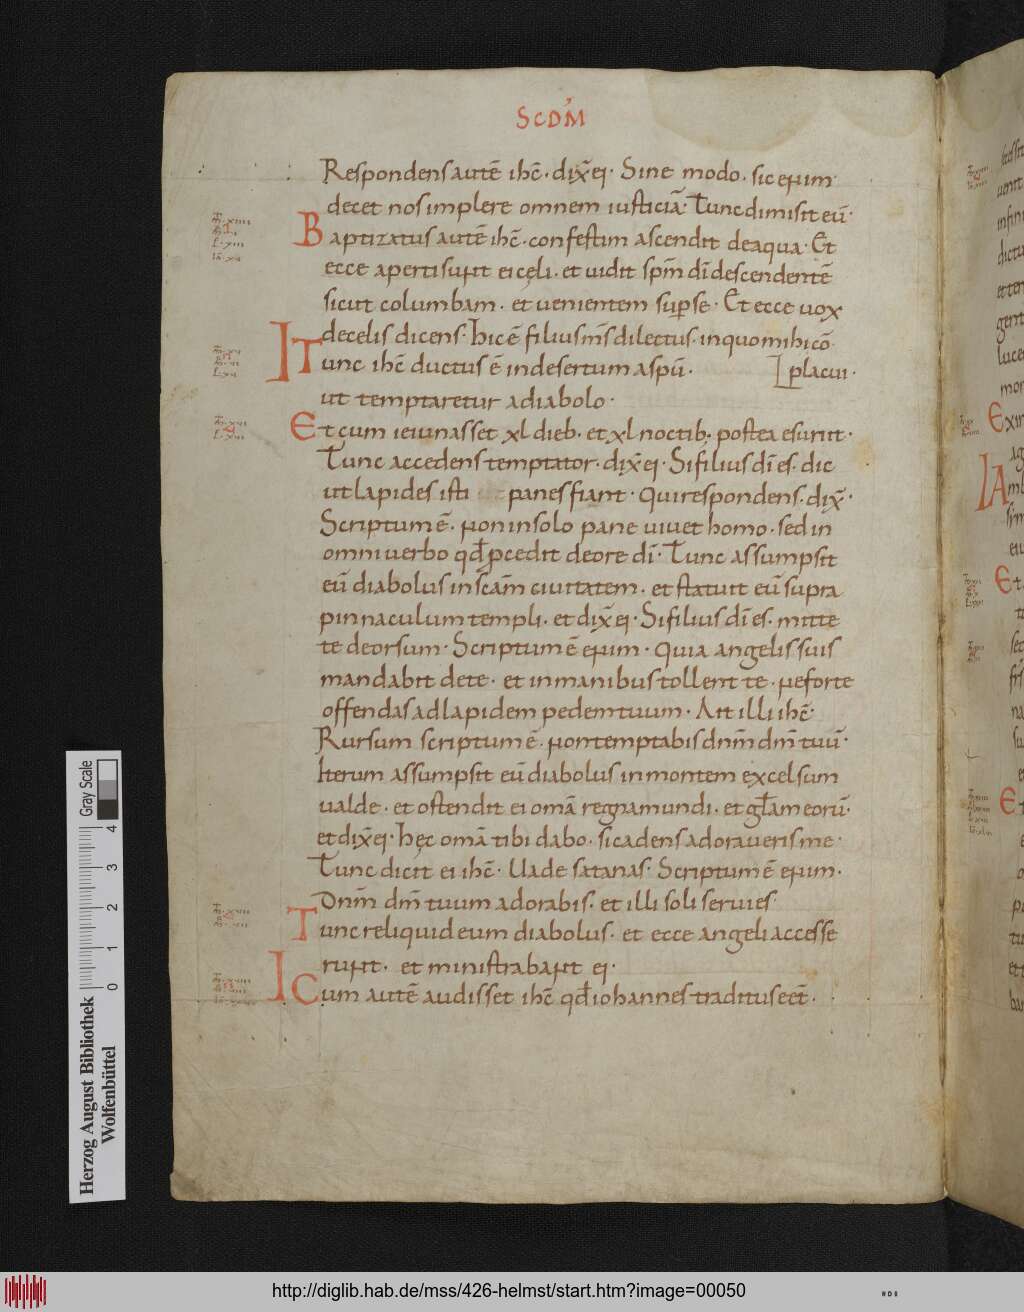 SCDM
Respondens autē ihc̄. dix̄ ei. Sine modo. sic enim
decet nos implere omnem iusticiā. Tunc dimisit eū.
Baptizatus autē ihc̄. confestim ascendit de aqua. Et
ecce aperti sunt ei cęli. et uidit sp̄m dī descendentē
sicut columbam. et uenientem sup se. Et ecce uox
de celis dicens. Hic ē filius ms̄ dilectus. in quo mihi cō
Tunc ihc̄ ductus ē in desertum a spū. placui.
ut temptaretur a diabolo.
Et cum ieiunasset xl dieb. et xl noctib. postea esuriit.
Tunc accedens temptator. dix̄ ei. Si filius dī es. dic
ut lapides isti panes fiant. Qui respondens. dix̄.
Scriptum ē. non in solo pane uiuet homo. sed in
omni uerbo qđ pcedit de ore dī. Tunc assumpsit
eū diabolus in sc̄am ciuitatem. et statuit eū supra
pinnaculum templi. et dix̄ ei. Si filius dī es. mitte
te deorsum. Scriptum ē enim. Quia angelis suis
mandabit de te. et in manibus tollent te. ne forte
offendas ad lapidem pedem tuum. Ait illi ihc̄.
Rursum scriptum ē. non temptabis dnm̄ dm̄ tuū.
Iterum assumpsit eū diabolus in montem excelsum
ualde. et ostendit ei omā regna mundi. et głam eorū.
et dix̄ ei. Hęc omā tibi dabo. si cadens adoraueris me.
Tunc dicit ei ihc̄. Uade satanas. Scriptum ē enim.
Dnm̄ dm̄ tuum adorabis. et illi soli seruies.
Tunc reliquid eum diabolus. et ecce angeli accesse
runt. et ministrabant ei.
Cum autē audisset ihc̄ qđ iohannes traditus eēt.
Gray Scale
4
3
2
1
0
Herzog August Bibliothek
Wolfenbüttel
http://diglib.hab.de/mss/426-helmst/start.htm?image=00050